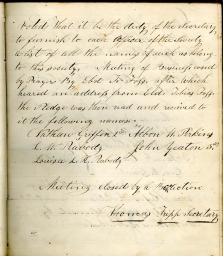 Voted That it be the duty of the Secretary
to furnish to each of the Society
a list of all the names of such as belong
to this society. Meeting of Business closed
by Prayer By Eld. Fiss, after which
heard an address from Eld. Tobias Foss
the Pledge was then read and received to
it the following names.
Nathan Griffin Albon W. Perkins
L. W. Peabody John Yeaton
Louisa L. H. Peabody
Meeting closed by a
Thomas Tripp Secretary